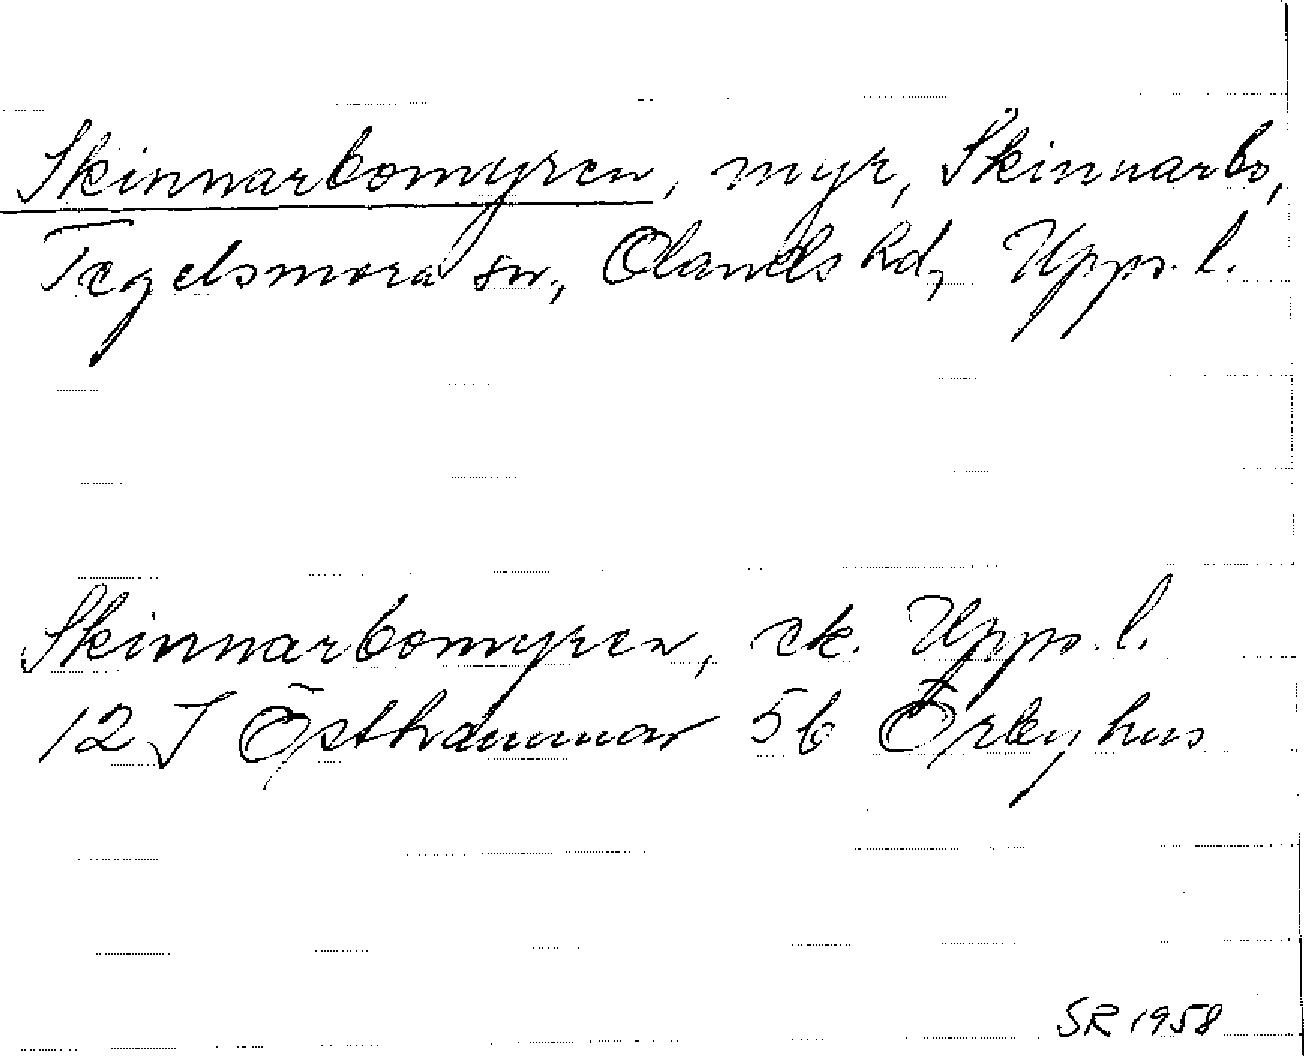 Skinnarbomyren, myr, Skinnarbo,
Tegelsmora sn, Olands hd, Upps. l.
Skinnarbomyren, ek. Upps. l.
12 I Östhammar 5b Örbyhus
SR 1958